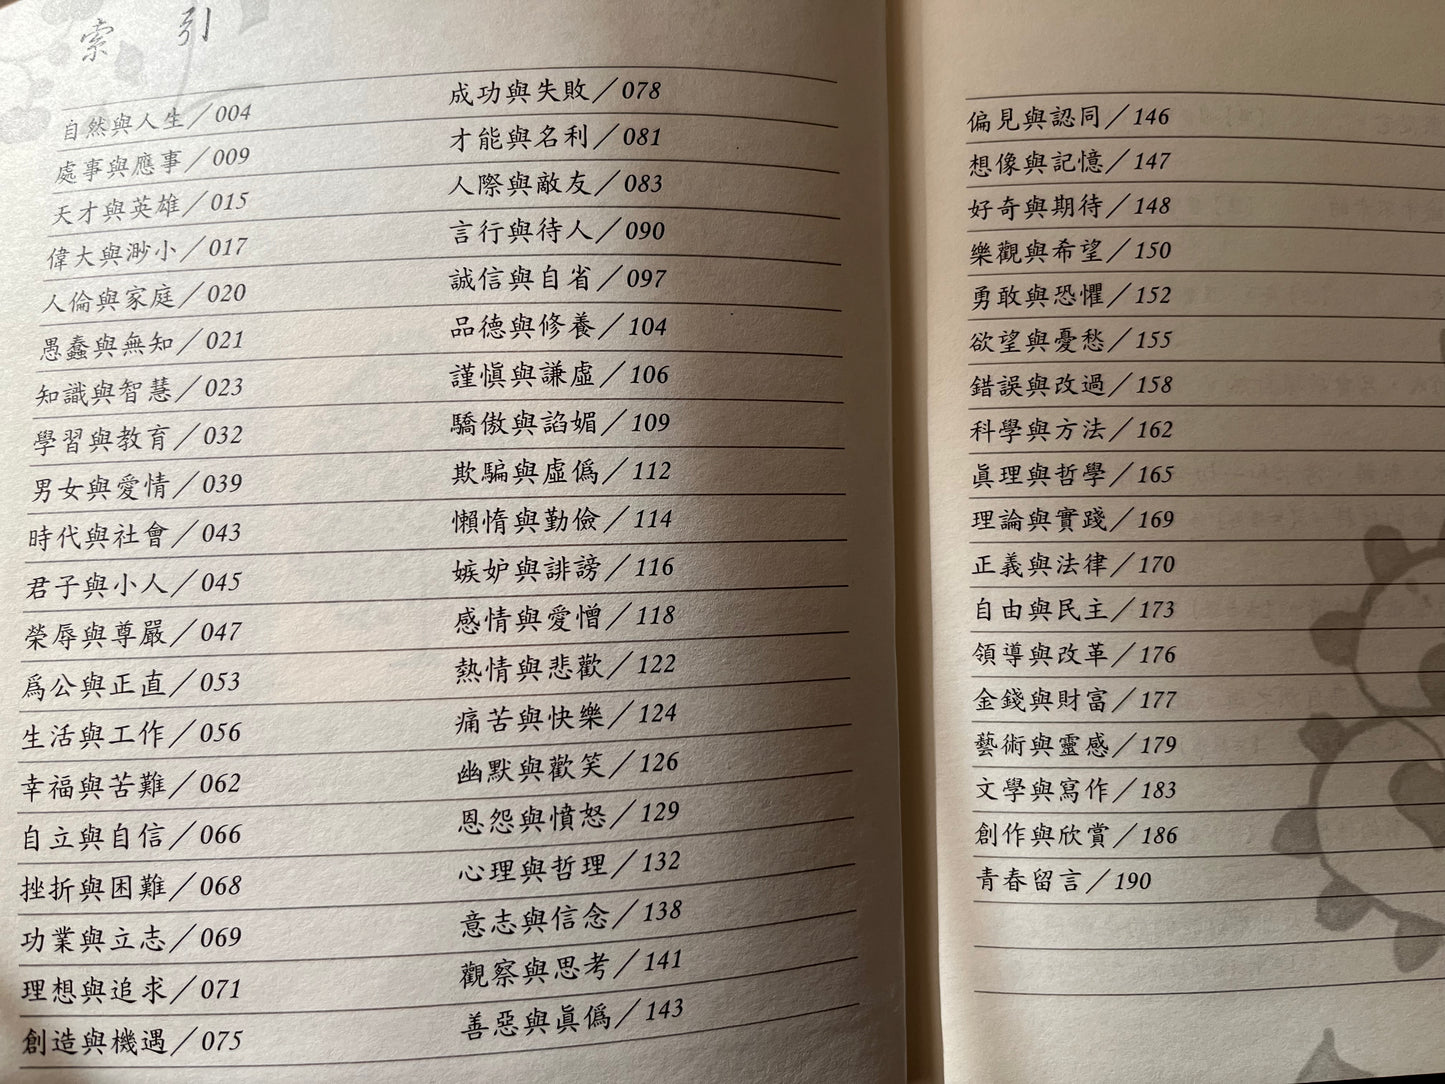 索 引
自然與人生／004
處事與應事／009
天才與英雄／015
偉大與渺小／017
人倫與家庭／020
愚蠢與無知／021
知識與智慧／023
學習與教育／032
男女與愛情／039
時代與社會／043
君子與小人／045
榮辱與尊嚴／047
爲公與正直／053
生活與工作／056
幸福與苦難／062
自立與自信／066
挫折與困難／068
功業與立志／069
理想與追求／071
創造與機遇／075
成功與失敗／078
才能與名利／081
人際與敵友／083
言行與待人／090
誠信與自省／097
品德與修養／104
謹愼與謙虛／106
驕傲與諂媚／109
欺騙與虛僞／112
懶惰與勤儉／114
嫉妒與誹謗／116
感情與愛憎／118
熱情與悲歡／122
痛苦與快樂／124
幽默與歡笑／126
恩怨與憤怒／129
心理與哲理／132
意志與信念／138
觀察與思考／141
善惡與眞僞／143
偏見與認同／146
想像與記憶／147
好奇與期待／148
樂觀與希望／150
勇敢與恐懼／152
欲望與憂愁／155
錯誤與改過／158
科學與方法／162
眞理與哲學／165
理論與實踐／169
正義與法律／170
自由與民主／173
領導與改革／176
金錢與財富／177
藝術與靈感／179
文學與寫作／183
創作與欣賞／186
青春留言／190